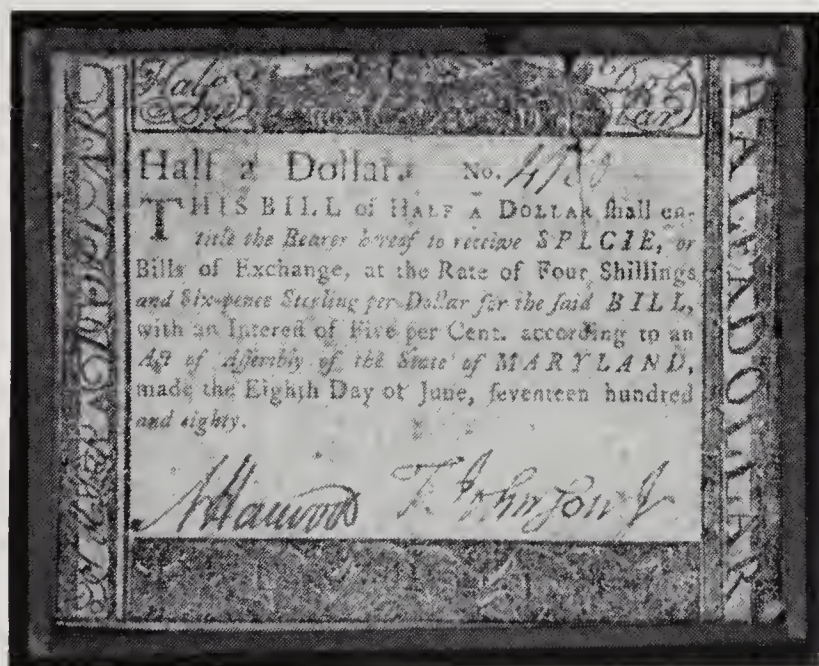 Half Dol
lar
Half a Dollar. No.
THIS BILL of HALF A DOLLAR ſhall en-
title the Bearer hereof to receive SPECIE, or
Bills of Exchange, at the Rate of Four Shillings
and Six-pence Sterling per Dollar for the ſaid BILL,
with an Intereſt of Five per Cent. according to an
Act of Aſſembly of the State of MARYLAND,
made the Eighth Day of June, ſeventeen hundred
and eighty.
NHarwood T. Johnson Jr
HALF DOLLAR